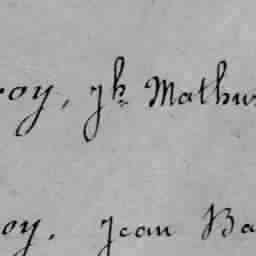 oy, Jh Mathu
oy. Jean Ba